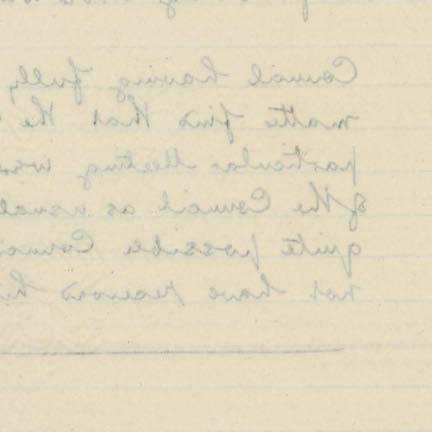 Council having fully
matter find that the
particular Meeting
of the Council as usual
quite possible
not have received